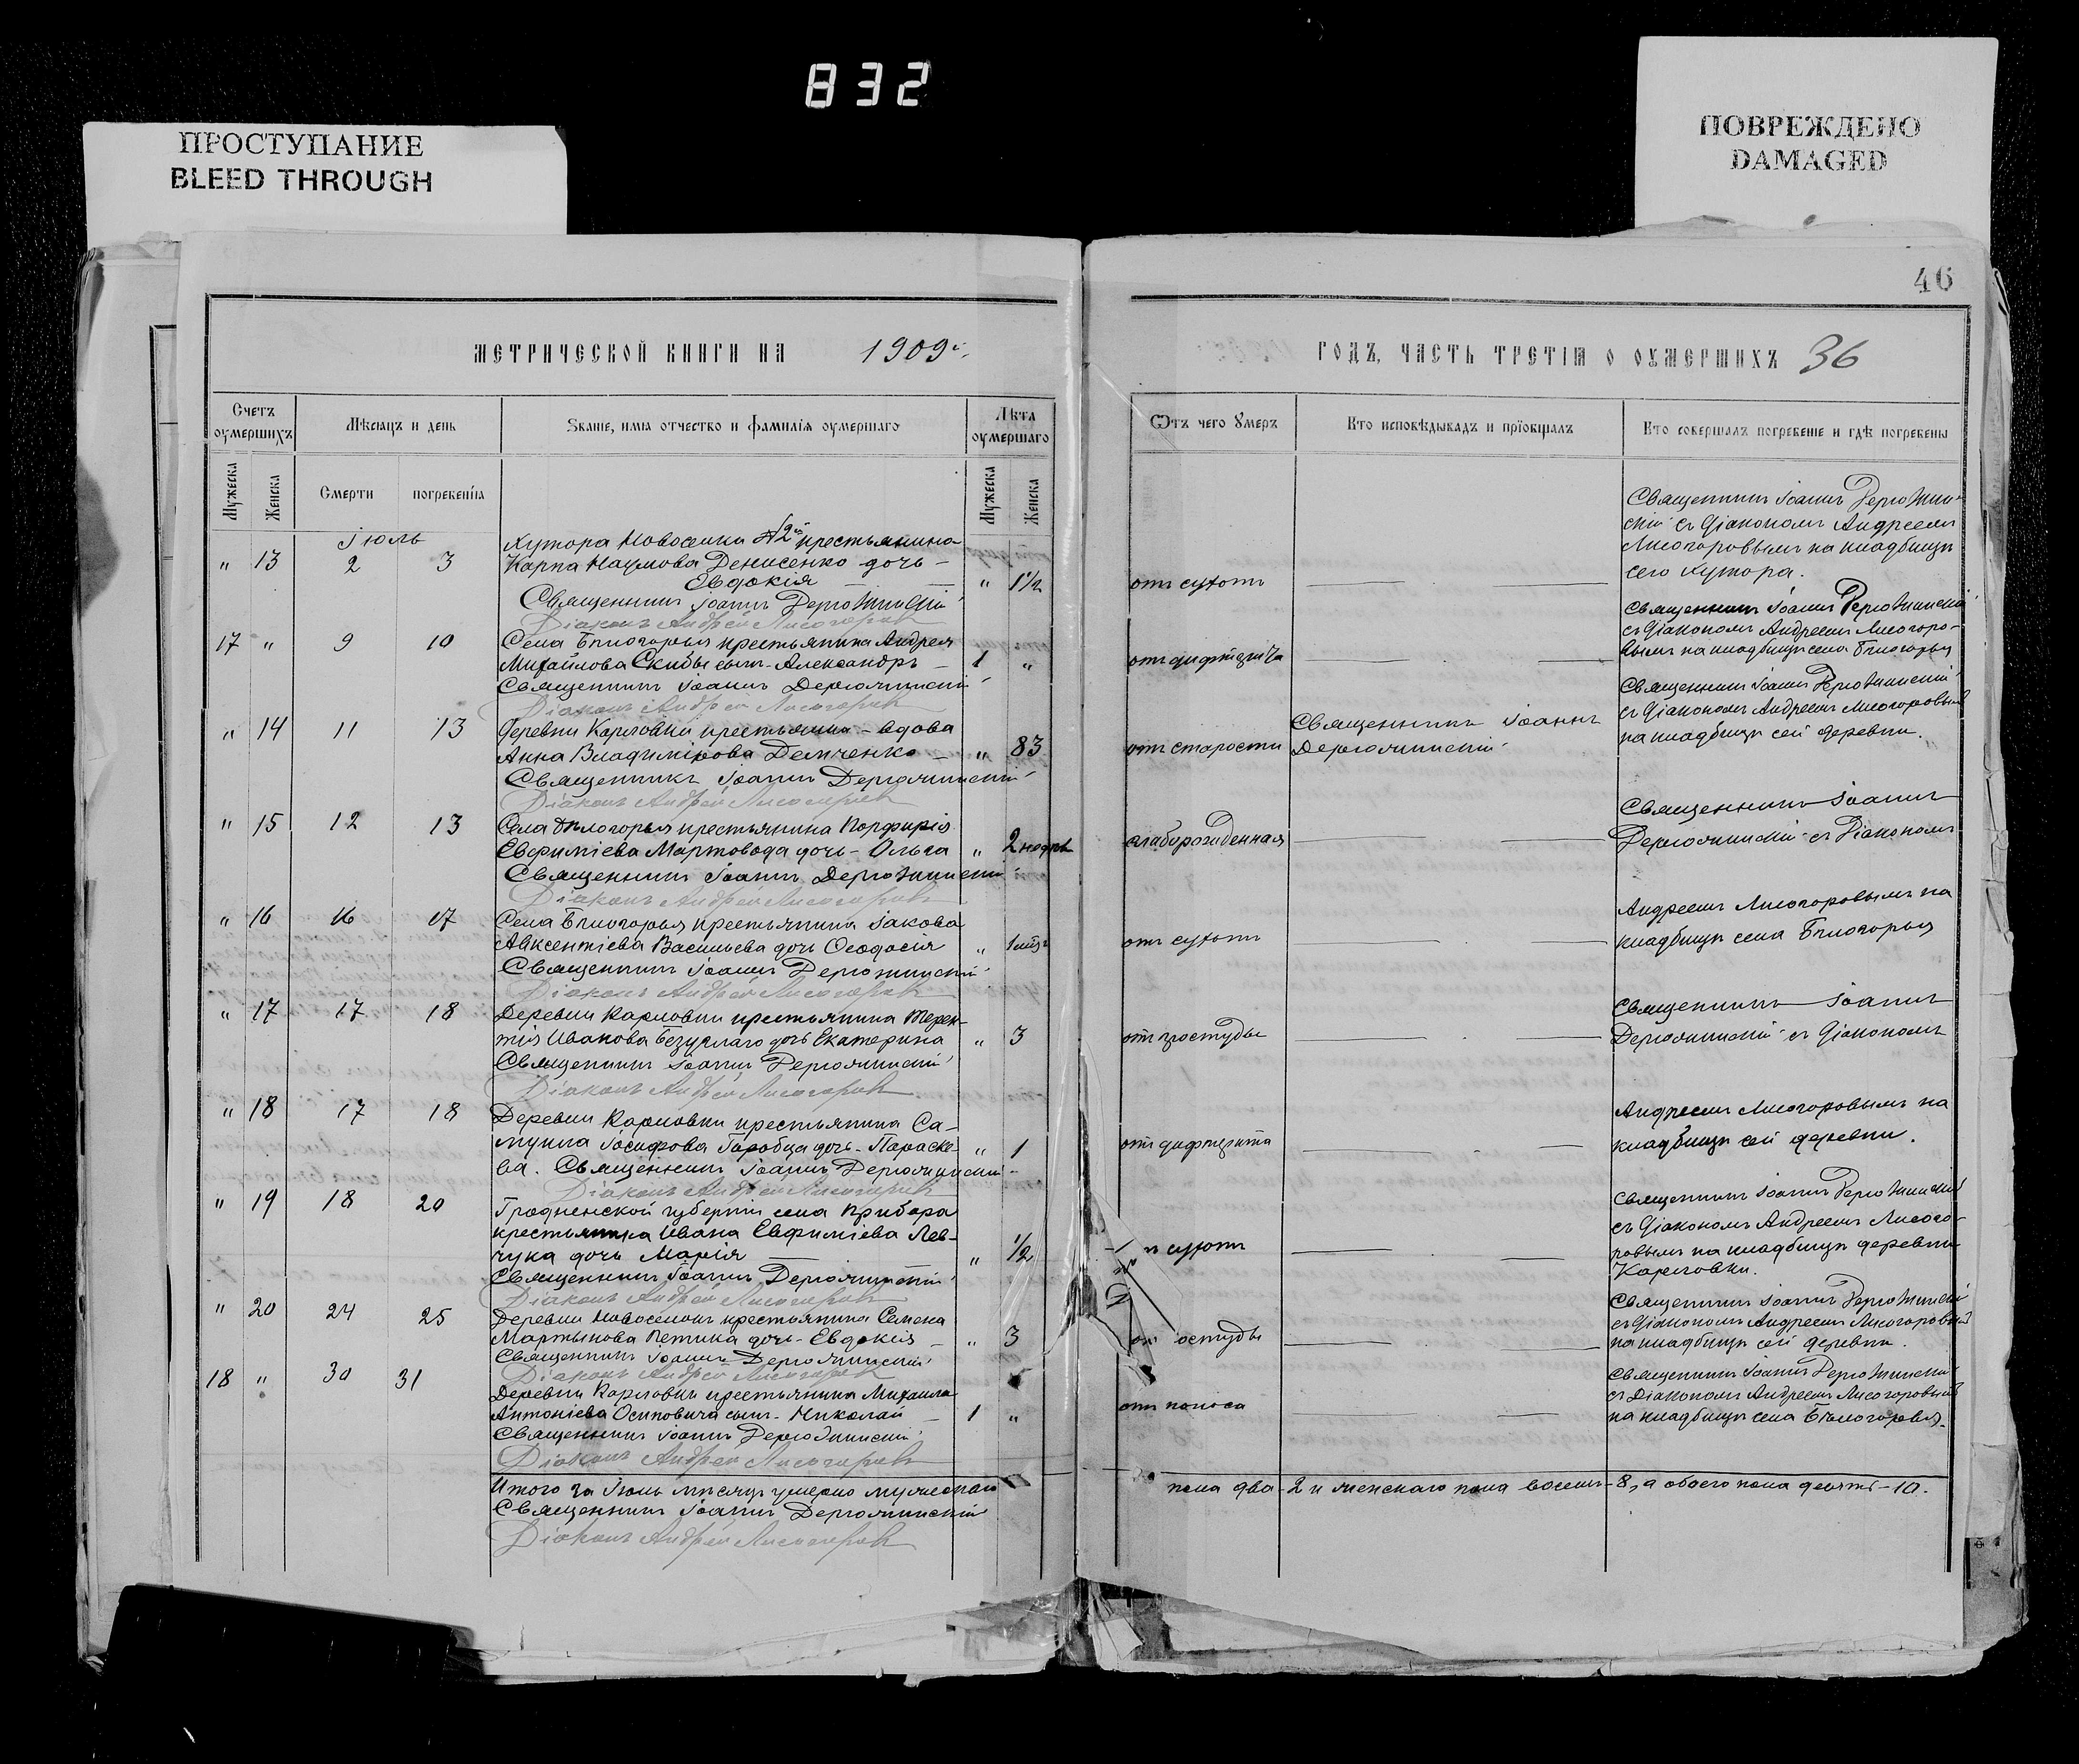 832
ПРОСТУПАНИЕ
BLEED THROUGH
ПОВРЕЖДЕНО
DAMAGED
46
МЕТРИЧЕСКОЙ КНИГИ НА 1909 г.
Счетъ оумершихъ
Мѣсяцъ и день
Званіе, имя отчество и фамилія оумершаго
Лѣта оумершаго
Мужеска
Женска
Смерти
погребенія
Мужеска
Женска
Іюль
Хутора Новоселка №2й крестьянина
" 13 2 3 Карпа Наумова Денисенко дочь -
Евдокія " 1½
Священникъ Іоаннъ Держинскій
Діаконъ Андрей Лисогоровъ
17 " 9 10 Села Бѣлогорья крестьянина Андрея
Михайлова Скибы сынъ - Александръ - 1 "
Священникъ Іоаннъ
Діаконъ Андрей Лисогоровъ
" 14 11 13 Деревни Карловки крестьянка - вдова
Анна Владимірова Демченко - " 83
Священникъ Іоаннъ
Діаконъ Андрей Лисогоровъ
" 15 12 13 Села Бѣлогорья крестьянина Порфирія
Евфиміева Мартовода дочь - Ольга " 2 недѣл
Священникъ Іоаннъ
Діаконъ Андрей Лисогоровъ
" 16 16 17 Села Бѣлогорья крестьянина Іакова
Авксентіева Васильева дочь Ѳеодосія " 1 мѣс
Священникъ Іоаннъ
Діаконъ Андрей Лисогоровъ
" 17 17 18 Деревни Карловки крестьянина Терен-
тія Иванова Безуглаго дочь Екатерина " 3
Священникъ Іоаннъ
Діаконъ Андрей Лисогоровъ
" 18 17 18 Деревни Карловки крестьянина Са-
муила Іосифова Горобца дочь - Параске- " 1
ва. Священникъ Іоаннъ
Діаконъ Андрей Лисогоровъ
" 19 18 20 Гродненской губерніи села Прибора
крестьянина Ивана Евфиміева Лев-
чука дочь Марія " ½
Священникъ Іоаннъ
Діаконъ Андрей Лисогоровъ
" 20 24 25 Деревни Новоселокъ крестьянина Семена
Мартынова Петика дочь - Евдокія - " 3
Священникъ Іоаннъ
Діаконъ Андрей Лисогоровъ
18 " 30 31 Деревни Карловки крестьянина Михаила
Антоніева Осиповича сынъ - Николай - 1 "
Священникъ Іоаннъ
Діаконъ Андрей Лисогоровъ
Итого за Іюль мѣсяцъ умерло мужескаго
Священникъ Іоаннъ
Діаконъ Андрей Лисогоровъ
ГОДЪ, ЧАСТЬ ТРЕТІЯ О ОУМЕРШИХЪ 36
Отъ чего умеръ
Кто исповѣдывалъ и пріобщалъ
Кто совершалъ погребеніе и гдѣ погребены
Священникъ Іоаннъ
скій съ Діакономъ Андреемъ
Лисогоровымъ на кладбищѣ
отъ сухотъ сего хутора.
Священникъ Іоаннъ
съ Діакономъ Андреемъ Лисогоро-
отъ дифтерита вымъ на кладбищѣ села Бѣлогорья
Священникъ Іоаннъ
Священникъ Іоаннъ съ Діакономъ Андреемъ Лисогоровымъ
отъ старости на кладбищѣ сей деревни.
Священникъ Іоаннъ
слаборожденная съ Діакономъ
Андреемъ Лисогоровымъ на
отъ сухотъ кладбищѣ села Бѣлогорья
Священникъ Іоаннъ
отъ простуды съ Діакономъ
Андреемъ Лисогоровымъ на
отъ дифтерита кладбищѣ сей деревни.
Священникъ Іоаннъ
съ Діакономъ Андреемъ Лисого-
ъ сухотъ ровымъ на кладбищѣ деревни
Карловки.
Священникъ Іоаннъ
съ Діакономъ Андреемъ Лисогоровымъ
от остуды на кладбищѣ сей деревни.
Священникъ Іоаннъ
съ Діакономъ Андреемъ Лисогоровымъ
отъ поноса на кладбищѣ села Бѣлогорья.
пола два - 2 и женскаго пола восемь - 8, а обоего пола десять - 10.